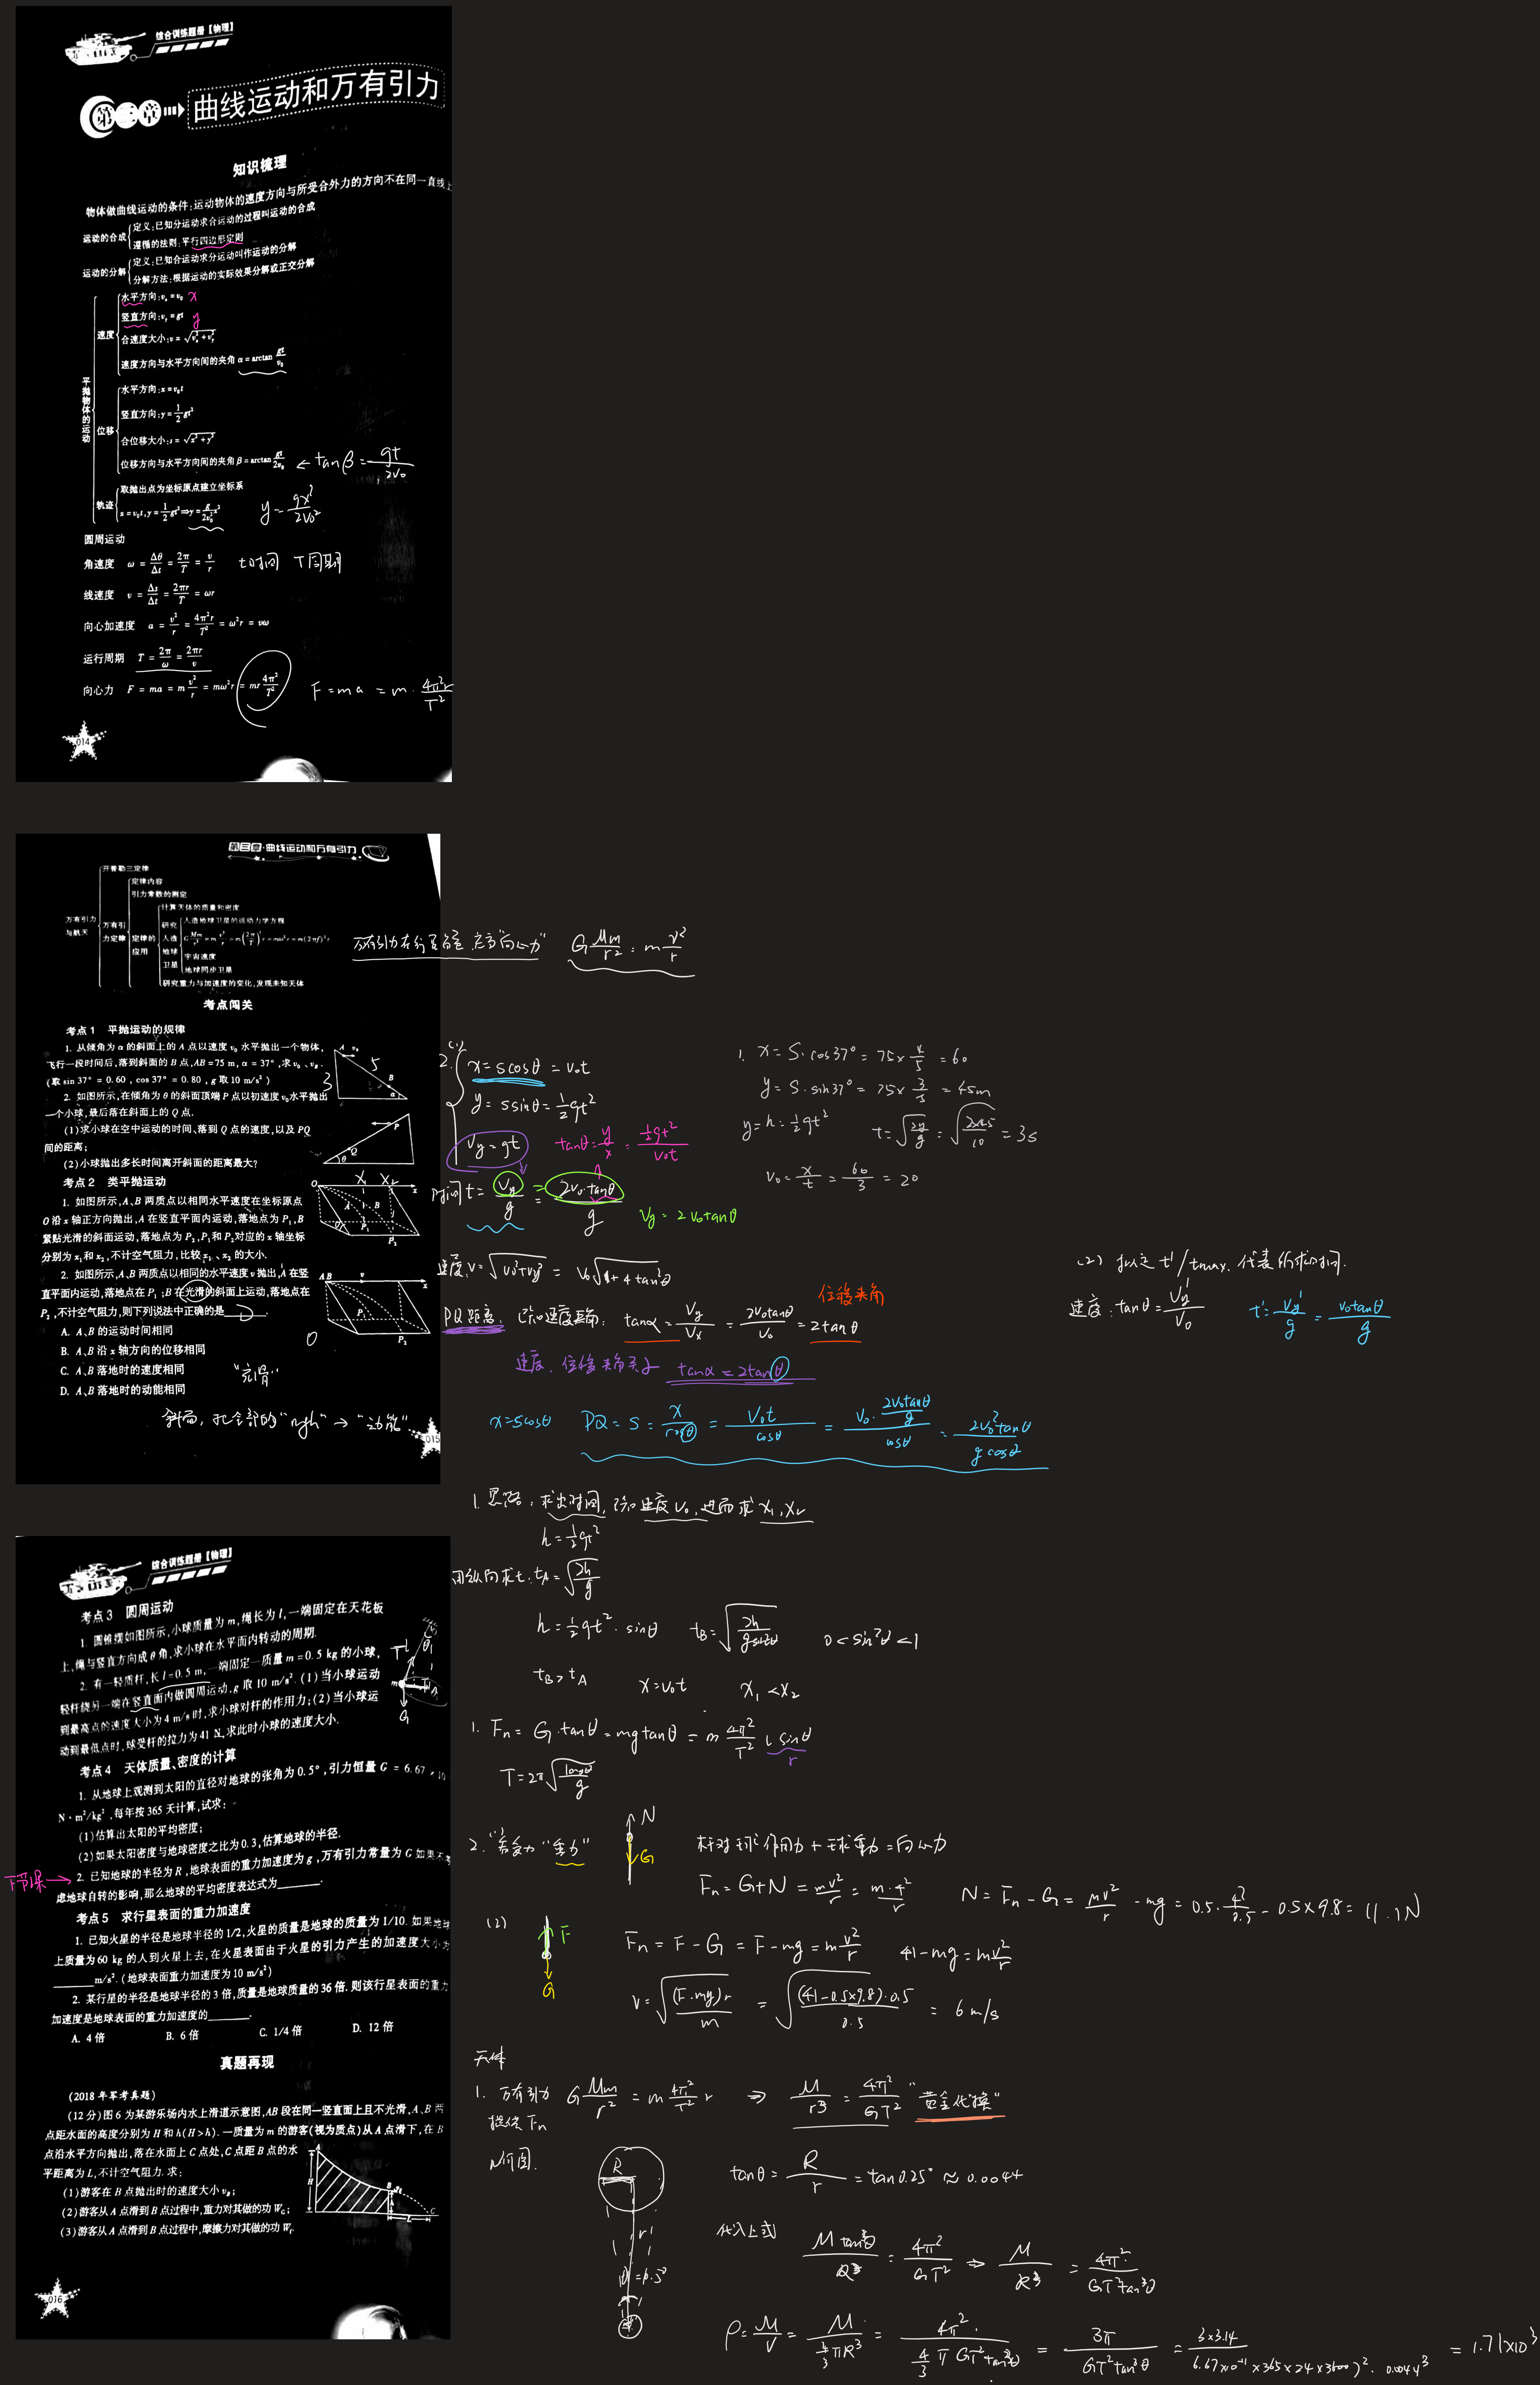 综合训练题册【物理】
第三章
曲线运动和万有引力
知识梳理
物体做曲线运动的条件:运动物体的速度方向与所受合外力的方向不在同一直线上
运动的合成
定义:已知分运动求合运动的过程叫运动的合成
遵循的法则:平行四边形定则
运动的分解
定义:已知合运动求分运动叫作运动的分解
分解方法:根据运动的实际效果分解或正交分解
平抛物体的运动
速度
水平方向:vₓ=v₀ x
竖直方向:v_y=gt y
合速度大小:v=√(vₓ²+v_y²)
速度方向与水平方向间的夹角 α=arctan gt/v₀
位移
水平方向:x=v₀t
竖直方向:y=1/2 gt²
合位移大小:s=√(x²+y²)
位移方向与水平方向间的夹角 β=arctan gt/2v₀ ← tanβ=gt/2v₀
轨迹
取抛出点为坐标原点建立坐标系
x=v₀t,y=1/2 gt²⇒y=g/2v₀² x² y=gx²/2v₀²
圆周运动
角速度 ω=Δθ/Δt=2π/T=v/r t时间 T周期
线速度 v=Δs/Δt=2πr/T=ωr
向心加速度 a=v²/r=4π²r/T²=ω²r=vω
运行周期 T=2π/ω=2πr/v
向心力 F=ma=m v²/r=mω²r=mr 4π²/T² F=ma=m·4π²r/T²
014
第三章·曲线运动和万有引力
万有引力与航天
开普勒三定律
万有引力定律
定律内容
引力常数的测定
定律的应用
计算天体的质量和密度
研究人造地球卫星
人造地球卫星的运动力学方程
G Mm/r²=m v²/r=m(2π/T)²r=mω²r=m(2πf)²r
宇宙速度
地球同步卫星
研究重力与加速度的变化,发现未知天体
"向心力" G Mm/r²=m v²/r
考点闯关
考点1 平抛运动的规律
1. 从倾角为 α 的斜面上的 A 点以速度 v₀ 水平抛出一个物体,
飞行一段时间后,落到斜面的 B 点,AB=75 m,α=37°,求 v₀、v_B.
(取 sin 37°=0.60,cos 37°=0.80,g 取 10 m/s²)
2. 如图所示,在倾角为 θ 的斜面顶端 P 点以初速度 v₀水平抛出
一个小球,最后落在斜面上的 Q 点.
(1)求小球在空中运动的时间、落到 Q 点的速度,以及 PQ
间的距离;
(2)小球抛出多长时间离开斜面的距离最大?
考点2 类平抛运动
1. 如图所示,A、B 两质点以相同水平速度在坐标原点
O 沿 x 轴正方向抛出,A 在竖直平面内运动,落地点为 P₁,B
紧贴光滑的斜面运动,落地点为 P₂,P₁和 P₂对应的 x 轴坐标
分别为 x₁和 x₂,不计空气阻力,比较 x₁、x₂ 的大小.
2. 如图所示,A、B 两质点以相同的水平速度 v 抛出,A 在竖
直平面内运动,落地点在 P₁;B 在光滑的斜面上运动,落地点在
P₂,不计空气阻力,则下列说法中正确的是 D .
A. A、B 的运动时间相同
B. A、B 沿 x 轴方向的位移相同
C. A、B 落地时的速度相同
D. A、B 落地时的动能相同
"光滑"
斜面,把全部的"mgh"→"动能"
015
2.(1) x=scosθ=v₀t
y=ssinθ=1/2 gt²
v_y=gt tanθ=y/x=1/2gt²/v₀t
时间t=v_y/g=2v₀·tanθ/g v_y=2v₀tanθ
速度:v=√(v₀²+v_y²)=v₀√(1+4tan²θ)
PQ距离: 已知速度夹角: tanα=v_y/vₓ=2v₀tanθ/v₀=2tanθ 位移夹角
速度、位移夹角关系 tanα=2tanθ
x=scosθ PQ=s=x/cosθ=v₀t/cosθ=v₀·2v₀tanθ/g/cosθ=2v₀²tanθ/gcosθ
1. x=S·cos37°=75×4/5=60
y=S·sin37°=75×3/5=45m
y=h=1/2gt² t=√(2y/g)=√(2×45/10)=3s
v₀=x/t=60/3=20
(2) 拟定 t'/tmax 代表所求时间.
速度:tanθ=v_y'/v₀ t'=v_y'/g=v₀tanθ/g
1. 思路:求出时间,已知速度v₀,进而求x₁,x₂
h=1/2gt²
用纵向求t:t_A=√(2h/g)
h=1/2gt²·sinθ t_B=√(2h/gsin²θ) 0<sin²θ<1
t_B>t_A x=v₀t x₁<x₂
综合训练题册【物理】
考点3 圆周运动
1. 圆锥摆如图所示,小球质量为 m,绳长为 l,一端固定在天花板
上,绳与竖直方向成 θ 角,求小球在水平面内转动的周期.
2. 有一轻质杆,长 l=0.5 m,一端固定一质量 m=0.5 kg 的小球,
轻杆绕另一端在竖直面内做圆周运动,g 取 10 m/s².(1)当小球运动
到最高点的速度大小为 4 m/s 时,求小球对杆的作用力;(2)当小球运
动到最低点时,球受杆的拉力为 41 N,求此时小球的速度大小.
考点4 天体质量、密度的计算
1. 从地球上观测到太阳的直径对地球的张角为 0.5°,引力恒量 G=6.67×10
N·m²/kg²,每年按 365 天计算,试求:
(1)估算出太阳的平均密度;
(2)如果太阳密度与地球密度之比为 0.3,估算地球的半径.
下节课→
2. 已知地球的半径为 R,地球表面的重力加速度为 g,万有引力常量为 G 如果不考
虑地球自转的影响,那么地球的平均密度表达式为______.
考点5 求行星表面的重力加速度
1. 已知火星的半径是地球半径的 1/2,火星的质量是地球的质量为 1/10. 如果地球
上质量为 60 kg 的人到火星上去,在火星表面由于火星的引力产生的加速度大小为
______m/s².(地球表面重力加速度为 10 m/s²)
2. 某行星的半径是地球半径的 3 倍,质量是地球质量的 36 倍. 则该行星表面的重力
加速度是地球表面的重力加速度的______.
A. 4 倍 B. 6 倍 C. 1/4 倍 D. 12 倍
真题再现
(2018 年军考真题)
(12 分)图 6 为某游乐场内水上滑道示意图,AB 段在同一竖直面上且不光滑,A、B 两
点距水面的高度分别为 H 和 h(H>h). 一质量为 m 的游客(视为质点)从 A 点滑下,在 B
点沿水平方向抛出,落在水面上 C 点处,C 点距 B 点的水
平距离为 L,不计空气阻力. 求:
(1)游客在 B 点抛出时的速度大小 v_B;
(2)游客从 A 点滑到 B 点过程中,重力对其做的功 W_G;
(3)游客从 A 点滑到 B 点过程中,摩擦力对其做的功 W_f.
016
1. Fn=G·tanθ=mgtanθ=m 4π²/T² lsinθ r
T=2π√(lcosθ/g)
2.(1) "重力" N G 杆对球作用力+球重力=向心力
Fn=G+N=mv²/r=m·4²/r N=Fn-G=mv²/r-mg=0.5·4²/0.5-0.5×9.8=11.1N
(2) F G Fn=F-G=F-mg=m v²/r 41-mg=m v²/r
v=√((F-mg)r/m)=√((41-0.5×9.8)·0.5/0.5)=6m/s
天体
1. 万有引力 G Mm/r²=m 4π²/T² r ⇒ M/r³=4π²/GT² "黄金代换"
提供Fn
R r θ=0.5° tanθ=R/r=tan0.25°≈0.0044
代入上式 Mtan³θ/R³=4π²/GT² ⇒ M/R³=4π²/GT²tan³θ
ρ=M/V=M/(4/3 πR³)=4π²/(4/3 πGT²tan³θ)=3π/GT²tan³θ=3×3.14/6.67×10⁻¹¹×(365×24×3600)²·0.0044³=1.71×10³